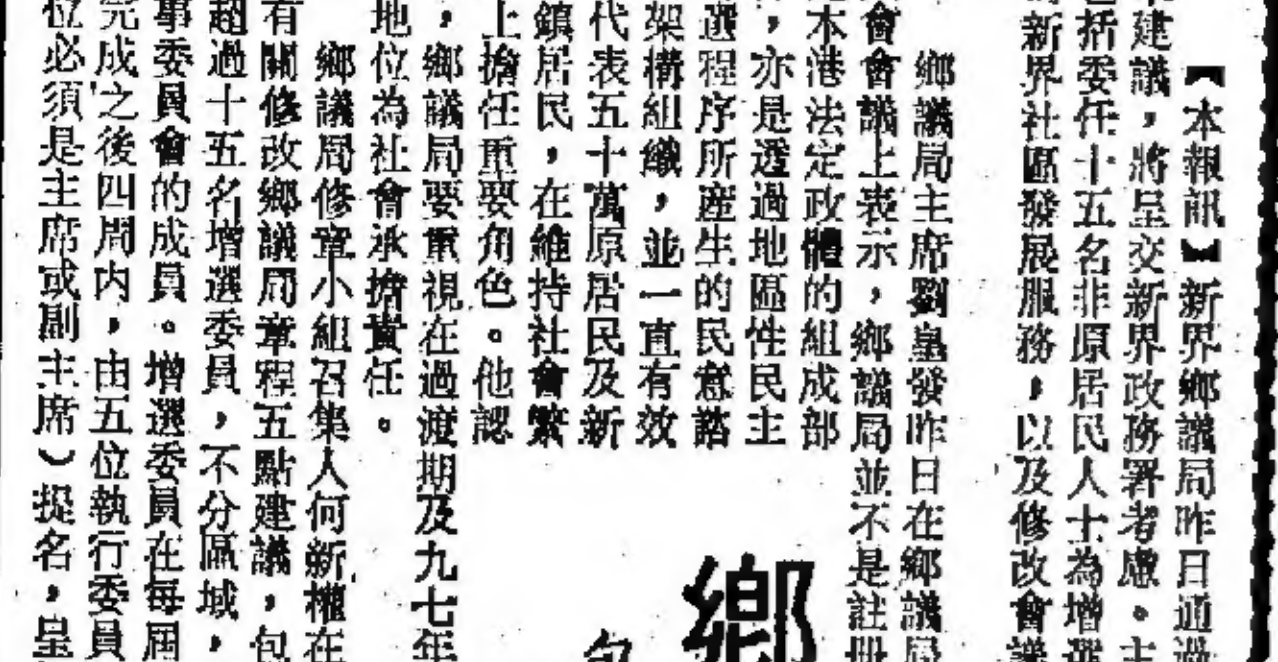 【本報訊】新界鄉議局昨日通過
建議,將呈交新界政務署考慮。主
括委任十五名非原居民人士為增選
新界社區發展服務,以及修改會議
鄉議局主席劉皇發昨日在鄉議局
會會議上表示,鄉議局並不是註冊
本港法定政體的組成部
,亦是透過地區性民主
選程序所產生的民意諮
架構組織,並一直有效
代表五十萬原居民及新
鎮居民,在維持社會繁
上擔任重要角色。他認
,鄉議局要重視在過渡期及九七年
地位為社會承擔責任。
鄉議局修章小組召集人何新權在
有關修改鄉議局章程五點建議,包
超過十五名增選委員,不分區域,
事委員會的成員。增選委員在每屆
完成之後四周內,由五位執行委員
位必須是主席或副主席)提名,呈
鄉
包